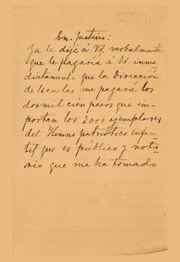 Dn. Justino:
Ya le dije á Vd. verbalmente
que le pagaría á Vd. inme
diatamente que la Dirección
de Escuelas me pagará los
dos mil cien pesos que im-
portan los 3000 ejemplares
del Himno patriótico infan
til que es público y noto
rio que me ha tomado